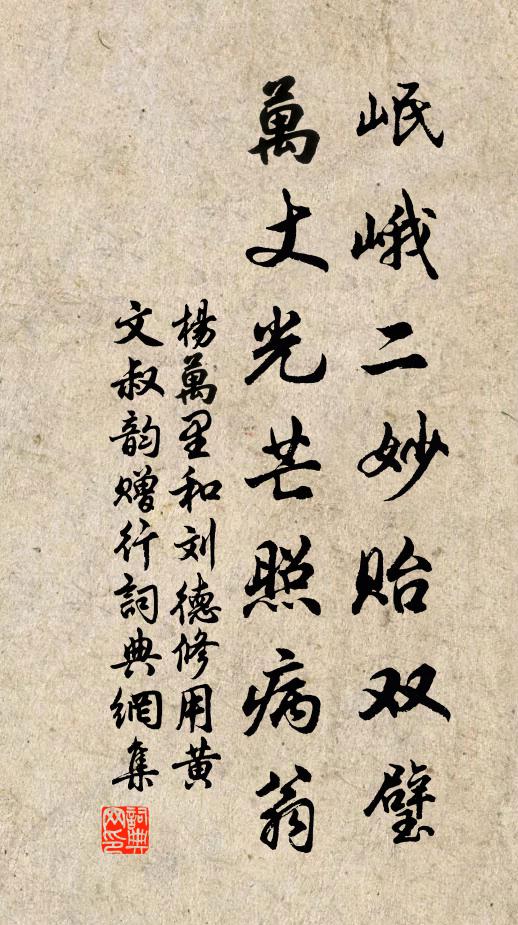 岷峨二妙贻双璧
萬丈光芒照病翁
楊萬里和刘德修用黄
文叔韵赠行詞典網集
詞典网印